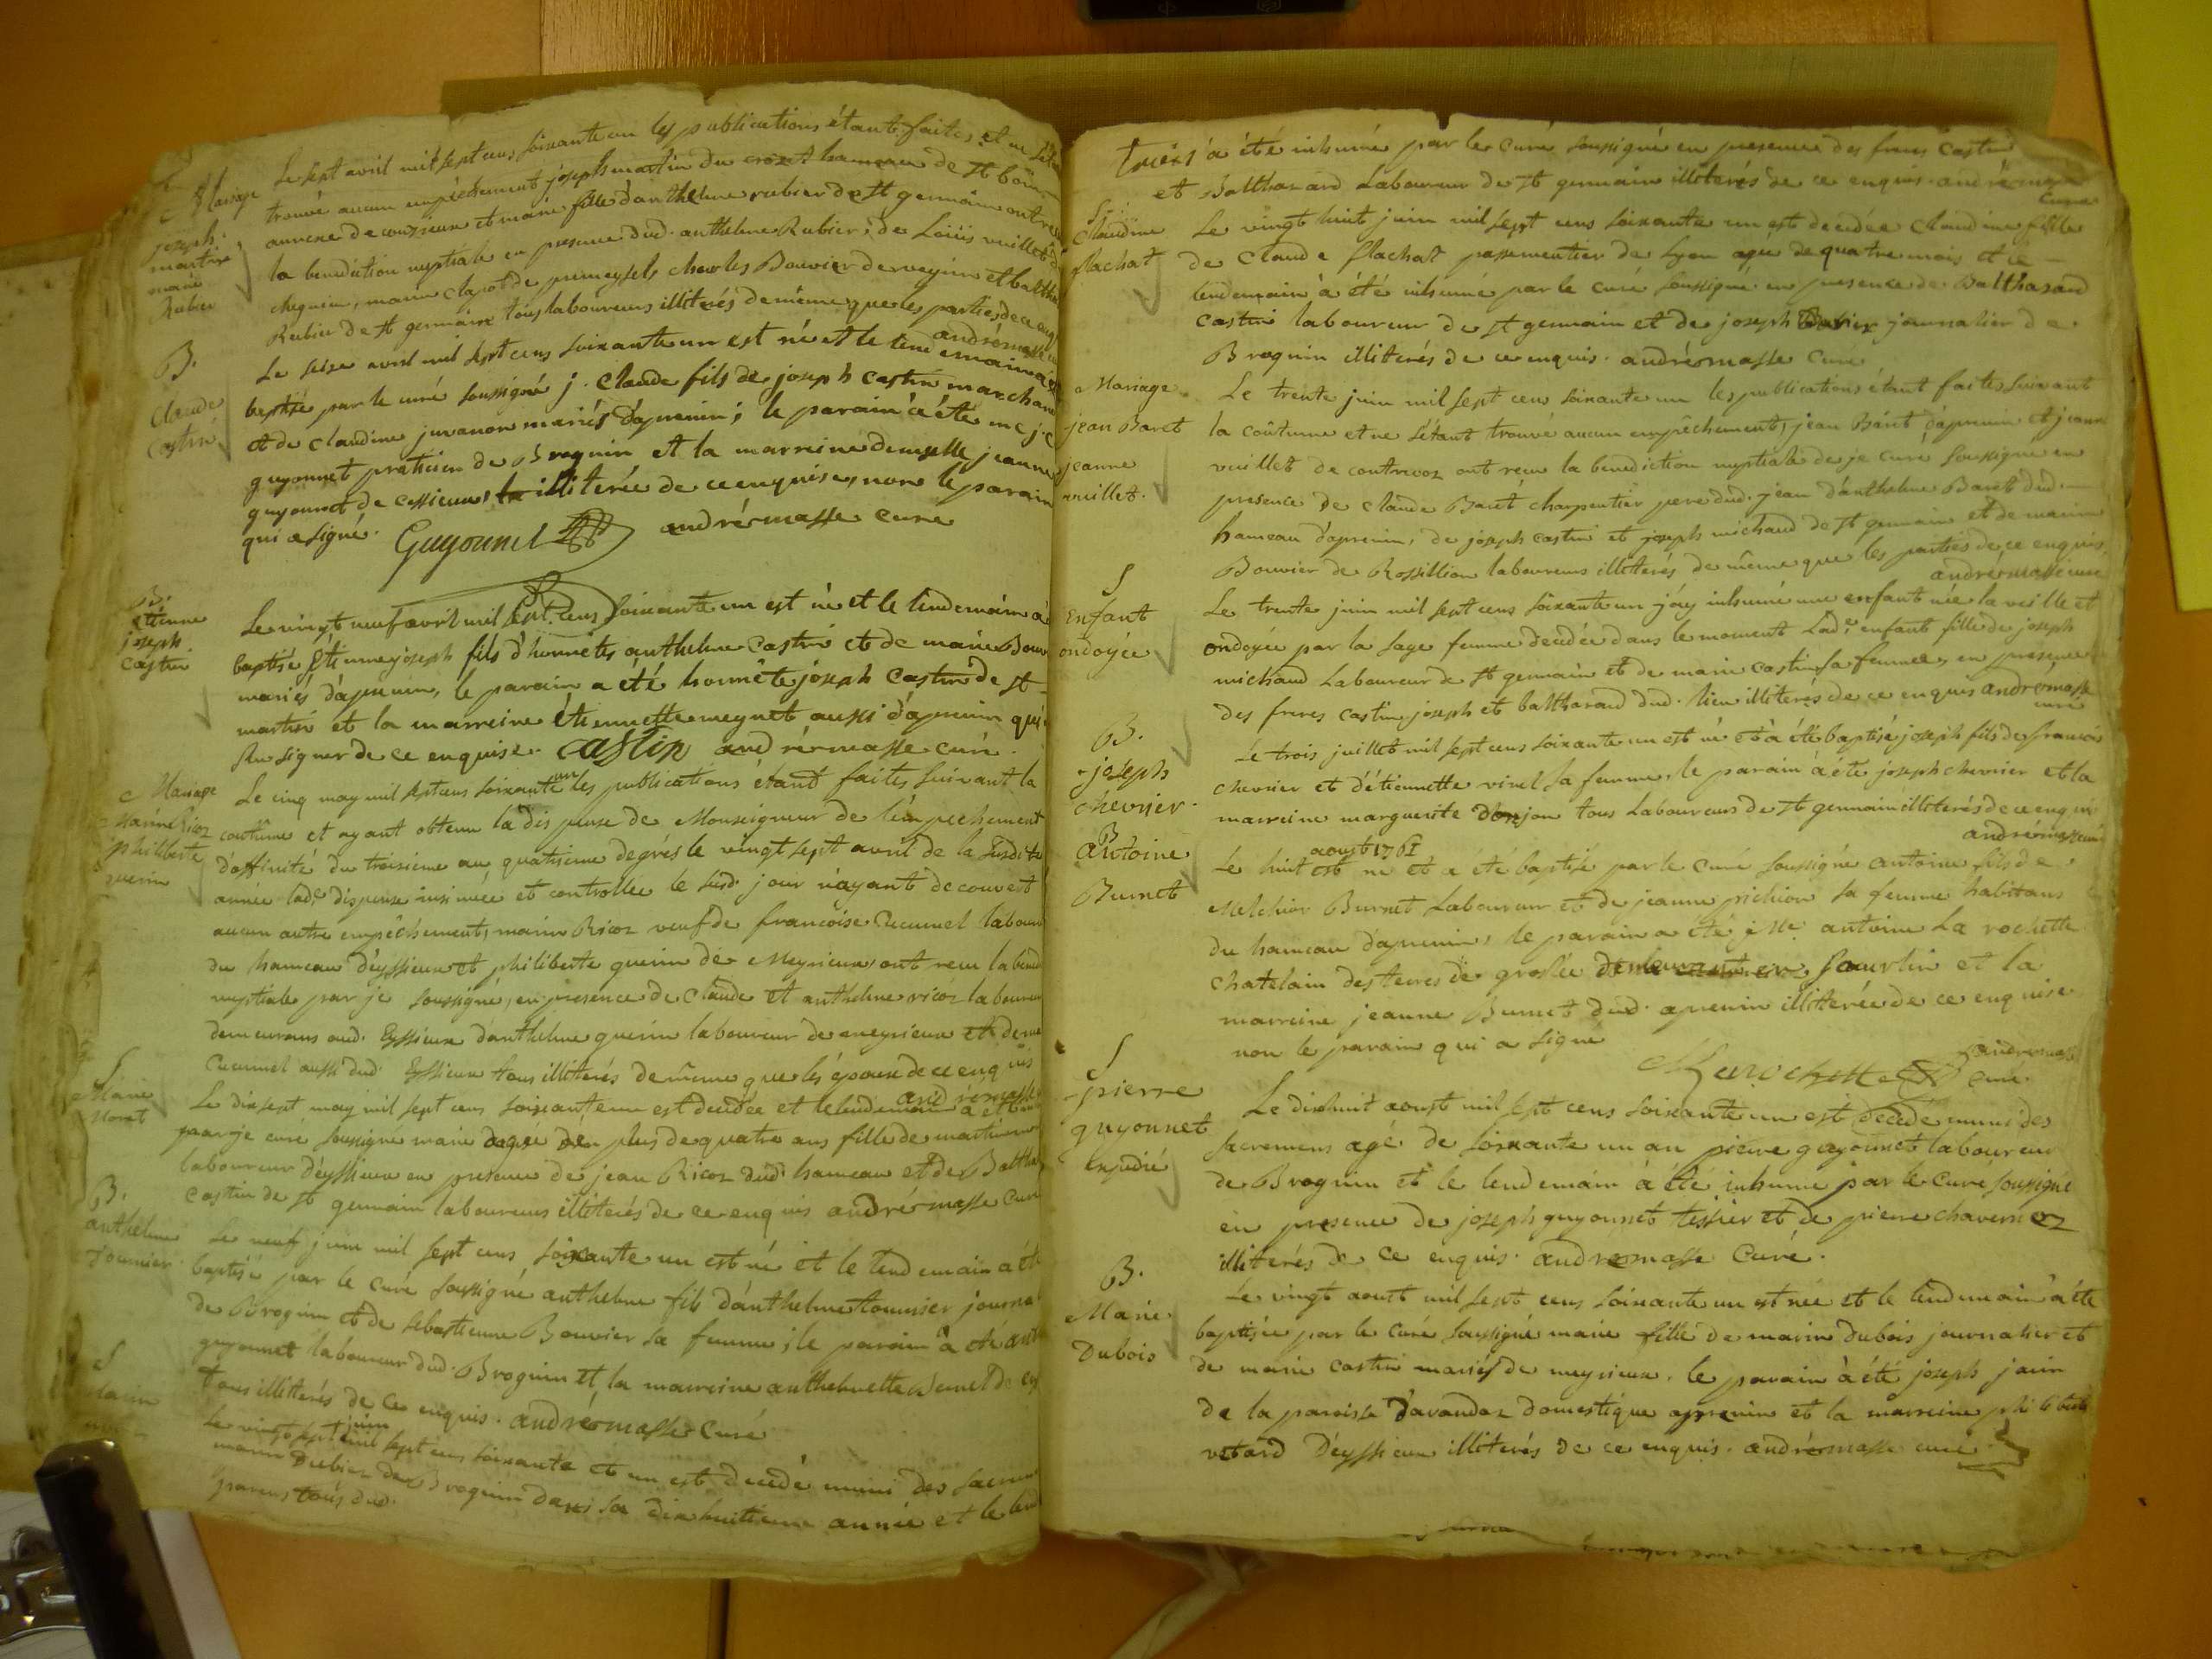 Mariage
joseph
martin
marie
Rubier
Le sept avril mil sept cens soixante un les publications étant faites et ne s'étant
trouvé aucun empêchement joseph martin du hameau de st
annexe de couzieux et marie fille d'anthelme rubier de st germain ont reçu
la benediction nuptiale en presence dud. anthelme Rubier, de Loüis vuillet
marin clapot de premeyzels charles Bouvier de vegin et
Rubier de st germain tous laboureurs illiterés de même que les parties de ce enquis
andrémasse
B.
Claude
Castin
Le seize avril mil sept cens soixante un est né et le lendemain a été
baptisé par le curé soussigné j. claude fils de joseph castin marchand
et de claudine juvanon mariés d'aprenin; le parain a été me j. c.
guyonnet praticien de Brognin et la marreine demlle jeanne
guyonnet de cessieux, illiterée de ce enquise, non le parain
qui a signé. Guyonnet andrémasse curé
B.
étienne
joseph
castin
Le vingt neuf avril mil sept cens soixante un est né et le lendemain a
baptisé étienne joseph fils d'honnetes anthelme castin et de marie Bouv
mariés d'aprenin, le parain a été honnête joseph castin de st
martin et la marreine étiennette meynet aussi d'aprenin qui
signer de ce enquise. castin andrémasse curé.
Mariage
marin Ricoz
philiberte
guerin
Le cinq may mil sept cens soixante un les publications étant faites suivant la
coutume et ayant obtenu la dispense de Monseigneur de l'empechement
d'affinité du troisieme au quatrieme degrés le vingt sept avril de la susdite
année lade dispense insinuée et controllée le susd. jour n'ayant decouvert
aucun autre empêchement, marin Ricoz veuf de francoise Cucunel labour
du hameau d'eyssieux et philiberte guerin de Meyrieux ont reçu la bened
nuptiale par je soussigné, en presence de claude et anthelme ricoz laboureur
demeurans aud. Eyssieux d'anthelme guerin laboureur de meyrieux et de
Cucunel aussi dud. Eyssieux tous illiterés de même que les époux de ce enquis
andrémasse
S
Marie
Moret
Le dix sept may mil sept cens soixante un est decedée et le lendemain a été
par je curé soussigné marie agée de plus de quatre ans fille de martin
laboureur d'eyssieux en presence de jean Ricoz dud. hameau et de Balthaz
castin de st germain laboureurs illiterés de ce enquis andrémasse curé
B.
anthelme
Tournier
Le neuf juin mil sept cens soixante un est né et le lendemain a été
baptisé par le curé soussigné anthelme fils d'anthelme tournier journal
de Brognin et de sebastienne Bouvier sa femme; le parain a été anth
guyonnet laboureur dud. Brognin et la marreine anthelmette
tous illiterés de ce enquis. andrémasse curé
S
Le vingt sept juin mil sept cens soixante et un est decedé muni des sacrem
marin Dubiez de Brognin dans sa dix huitieme année et le lend
parens tous dud.
a été inhumé par le curé soussigné en presence des freres castin
et Balthazard Laboureur de st germain illiterés de ce enquis. andrémasse
curé
S
Claudine
flachat
Le vingt huit juin mil sept cens soixante un est decedée claudine fille
de claude flachat passementier de Lyon agée de quatre mois et le
lendemain a été inhumé par le curé soussigné en presence de Balthazard
castin laboureur de st germain et de joseph Dubiez journalier de
Brognin illiterés de ce enquis. andrémasse curé
Mariage
jean Baret
jeanne
vuillet.
Le trente juin mil sept cens soixante un les publications étant faites suivant
la coûtume et ne s'étant trouvé aucun empêchement, jean Baret d'aprenin et jeanne
vuillet de contrevoz ont reçu la benediction nuptiale de je curé soussigné en
presence de claude Baret charpentier pere dud. jean d'anthelme Baret dud.
hameau d'aprenin, de joseph castin et joseph michaud de st germain et de marin
Bouvier de Rossillion laboureurs illiterés de même que les parties de ce enquis.
andrémasse curé
S
enfant
ondoyée
Le trente juin mil sept cens soixante un j'ay inhumé une enfant née la veille et
ondoyée par la sage femme decedée dans le moment lade enfant fille de joseph
michaud Laboureur de st germain et de marie castin sa femme, en presence
des freres castin joseph et balthazard dud. lieu illiterés de ce enquis andrémasse
curé
B.
joseph
chevrier.
Le trois juillet mil sept cens soixante un est né et a été baptisé joseph fils de francois
chevrier et d'étiennette vinel sa femme, le parain a été joseph chevrier et la
marreine marguerite donjon tous Laboureurs de st germain illiterés de ce enquis
andrémasse curé
B
Antoine
Burnet
aoust 1761
Le huit est né et a été baptisé par le curé soussigné antoine fils de
Melchior Burnet Laboureur et de jeanne prichion sa femme habitans
du hameau d'aprenin, le parain a été antoine La rochette
chatelain des terres de groslée et la
marreine jeanne Burnet dud. aprenin illiterée de ce enquise
non le parain qui a signé
Larochette andrémasse
curé
S
pierre
guyonnet
expedié
Le dixhuit aoust mil sept cens soixante un est decedé muni des
sacremens agé de soixante un an pierre guyonnet laboureur
de Brognin et le lendemain a été inhumé par le curé soussigné
en presence de joseph guyonnet tessier et de pierre chavernoz
illiterés de ce enquis. andrémasse curé.
B.
Marie
Dubois
Le vingt aoust mil sept cens soixante un est née et le lendemain a été
baptisée par le curé soussigné marie fille de marin dubois journalier et
de marie castin mariés de meyrieux. le parain a été joseph janin
de la paroisse d'arandaz domestique aprenin et la marreine philiberte
vetard d'eyssieux illiterés de ce enquis. andrémasse curé